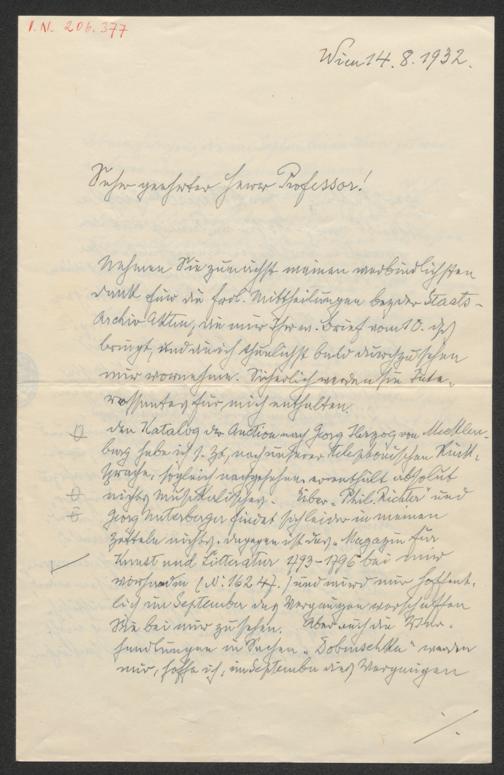 I.N. 206.377
Wien 14. 8. 1932.
Sehr geehrter Herr Professor!
Nehmen Sie zunächst meinen verbindlichsten
Dank für die frdl. Mittheilungen bez. der Staats-
Archiv-Akten, die mir Ihr w. Brief vom 10. ds
bringt, und die ich thunlichst bald durchzusehen
mir vornehme. Sicherlich werden sie Inte-
ressantes für mich enthalten.
Den Katalog der Auction nach Georg Herzog von Mecklen-
burg habe ich s. Zt, nach unserer telephonischen Rück-
sprache, sogleich nachgesehen; er enthält absolut
nichts Musikalisches. Über „Phil. Richter" und
Georg Unterberger findet sich leider in meinen
Zetteln nichts. Dagegen ist das „Magazin für
Kunst und Litteratur 1793-1796 bei mir
vorhanden (N. 16247.) und wird mir hoffent-
lich im September das Vergnügen verschaffen
Sie bei mir zu sehen. Aber auch die
handlungen in Sachen „Dobruschka" werden
mir, hoffe ich, im September dies Vergnügen
./.